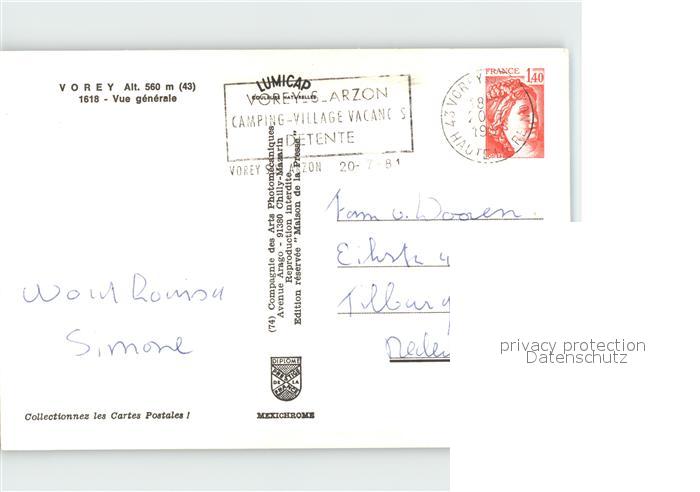 VOREY Alt. 560 m (43)
1618 - Vue générale
LUMICAP
COULEURS NATURELLES
VOREY-S-ARZON
CAMPING-VILLAGE VACANC S
DETENTE
VOREY S ARZON 20-7-81
FRANCE 1,40
43 VOREY
18 H
20-7
19
HAUTE LOIRE
(74) Compagnie des Arts Photomécaniques
Avenue Arago - 91380 Chilly-Mazarin
Reproduction interdite
Edition réservée "Maison de la Presse"
Fam v. Dooren
Tilburg
Neder
Simone
DIPLOME
PRESTIGE
DE LA
FRANCE
Collectionnez les Cartes Postales !
MEXICHROME
privacy protection
Datenschutz